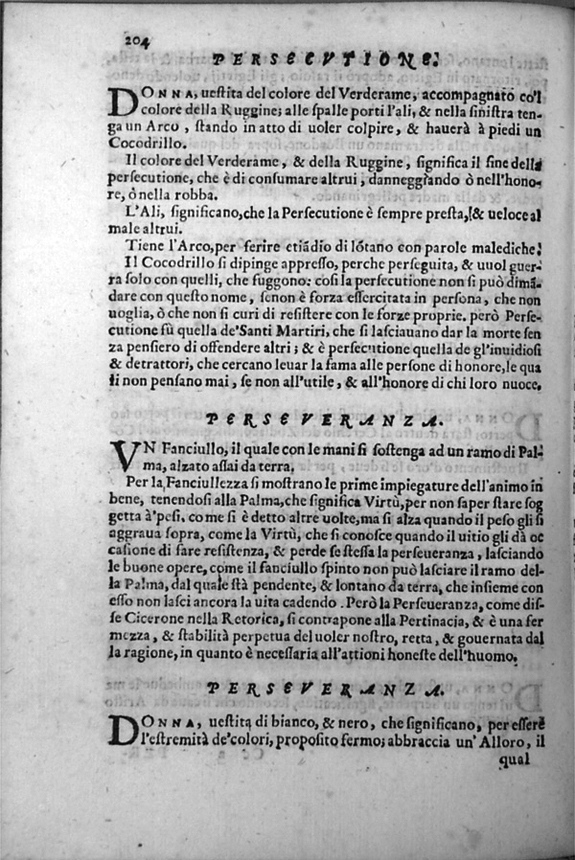 204
PERSECUTIONE.
DONNA, ueſtita del colore del Verderame, accompagnato co'l
colore della Ruggine; alle ſpalle porti l'ali, & nella ſiniſtra ten-
ga un Arco, ſtando in atto di uoler colpire, & hauerà à piedi un
Cocodrillo.
Il colore del Verderame, & della Ruggine, ſignifica il fine della
perſecutione, che è di conſumare altrui, danneggiando ò nell'hono-
re, ò nella robba.
L'Ali, ſignificano, che la Perſecutione è ſempre preſta, & ueloce al
male altrui.
Tiene l'Arco, per ferire etiãdio di lõtano con parole malediche.
Il Cocodrillo ſi dipinge appreſſo, perche perſeguita, & uuol guer-
ra ſolo con quelli, che fuggono: coſi la perſecutione non ſi può dimã-
dare con queſto nome, ſenon è forza eſſercitata in perſona, che non
uoglia, ò che non ſi curi di reſiſtere con le forze proprie. però Perſe-
cutione fù quella de'Santi Martiri, che ſi laſciauano dar la morte ſen
za penſiero di offendere altri; & è perſecutione quella de gl'inuidioſi
& detrattori, che cercano leuar la fama alle perſone di honore, le qua
li non penſano mai, ſe non all'utile, & all'honore di chi loro nuoce.
PERSEVERANZA.
VN Fanciullo, il quale con le mani ſi ſoſtenga ad un ramo di Pal-
ma, alzato aſſai da terra.
Per la Fanciullezza ſi moſtrano le prime impiegature dell'animo in
bene, tenendoſi alla Palma, che ſignifica Virtù, per non ſaper ſtare ſog
getta à'peſi, come ſi è detto altre uolte, ma ſi alza quando il peſo gli ſi
aggraua ſopra, come la Virtù, che ſi conoſce quando il uitio gli dà oc
caſione di fare reſiſtenza, & perde ſe ſteſſa la perſeueranza, laſciando
le buone opere, come il fanciullo ſpinto non può laſciare il ramo del-
la Palma, dal quale ſtà pendente, & lontano da terra, che inſieme con
eſſo non laſci ancora la uita cadendo. Però la Perſeueranza, come diſ-
ſe Cicerone nella Retorica, ſi contrapone alla Pertinacia, & è una fer
mezza, & ſtabilità perpetua del uoler noſtro, retta, & gouernata dal
la ragione, in quanto è neceſſaria all'attioni honeſte dell'huomo.
PERSEVERANZA.
DONNA, ueſtita di bianco, & nero, che ſignificano, per eſſere
l'eſtremità de'colori, propoſito fermo; abbraccia un'Alloro, il
qual